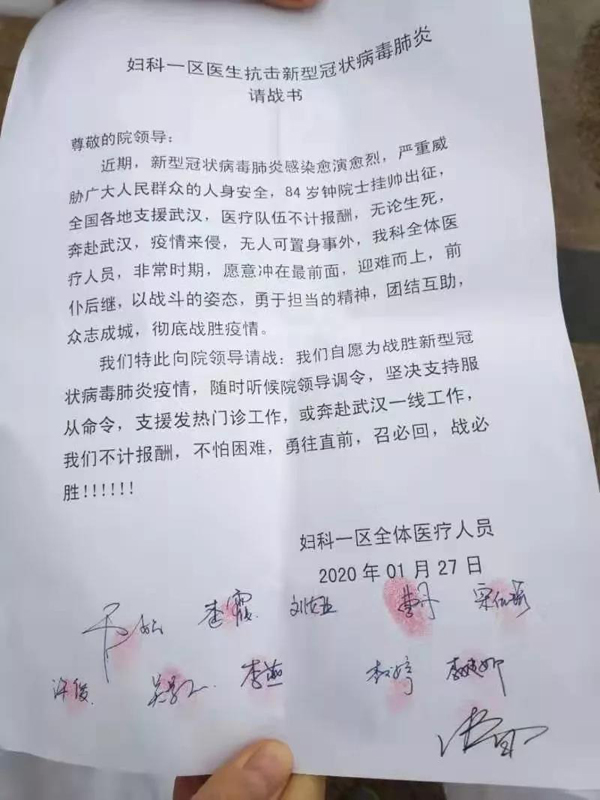 妇科一区医生抗击新型冠状病毒肺炎
请战书
尊敬的院领导：
近期，新型冠状病毒肺炎感染愈演愈烈，严重威
胁广大人民群众的人身安全，84 岁钟院士挂帅出征，
全国各地支援武汉，医疗队伍不计报酬，无论生死，
奔赴武汉，疫情来侵，无人可置身事外，我科全体医
疗人员，非常时期，愿意冲在最前面，迎难而上，前
仆后继，以战斗的姿态，勇于担当的精神，团结互助，
众志成城，彻底战胜疫情。
我们特此向院领导请战：我们自愿为战胜新型冠
状病毒肺炎疫情，随时听候院领导调令，坚决支持服
从命令，支援发热门诊工作，或奔赴武汉一线工作，
我们不计报酬，不怕困难，勇往直前，召必回，战必
胜！！！！！！
妇科一区全体医疗人员
2020 年 01 月 27 日
李燕 李婷